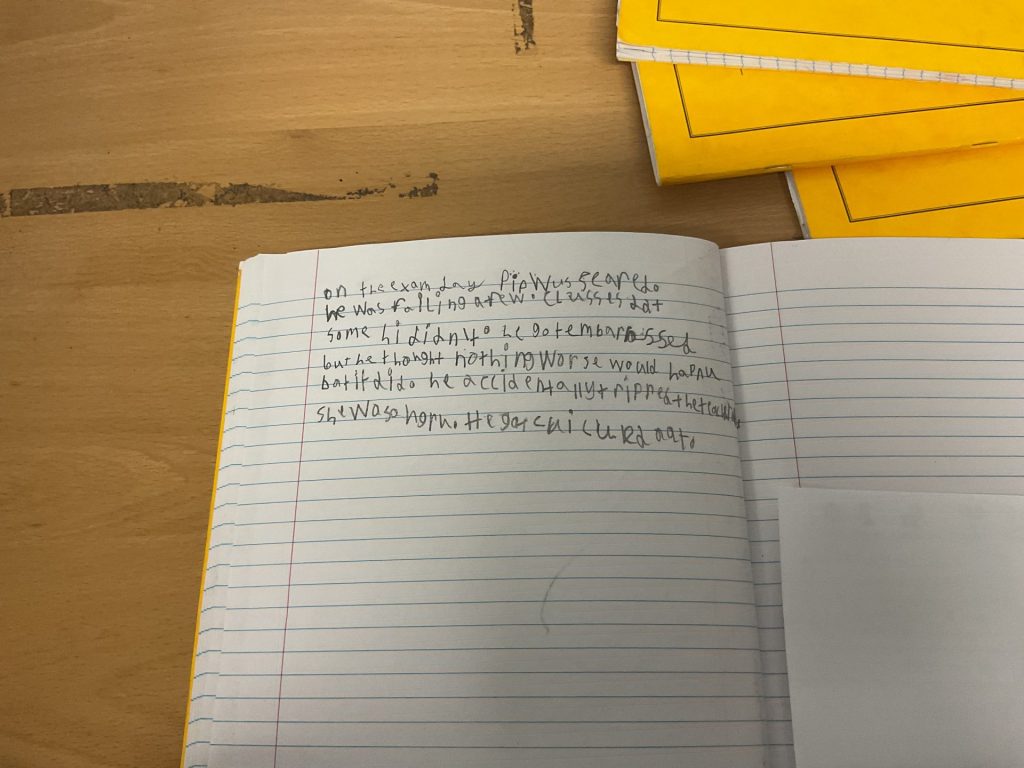 on the exam day Pip Wus scared.
he was failing a few. Clusses dat
some hi didnt. he got embarassed
but he thought nothing worse would hapnu
but it did. he accidentally ripped the
she was
He got